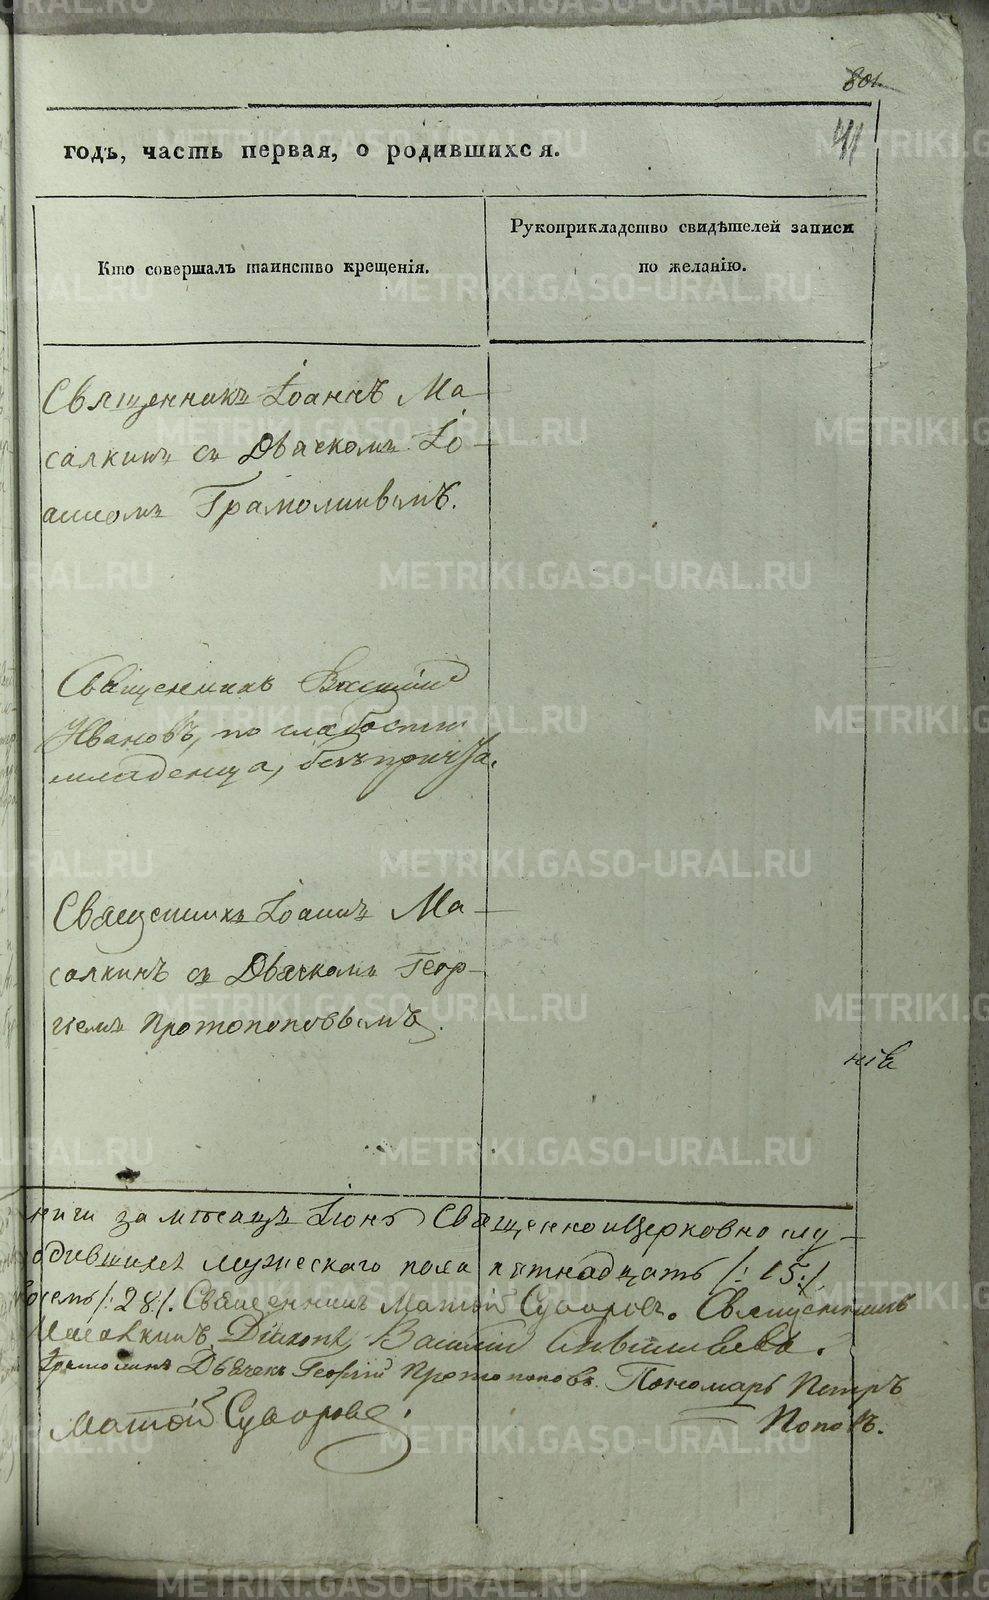 801
41
годъ, часть первая, о родившихся.
Кто совершалъ таинство крещенія.
Рукоприкладство свидѣтелей записи
по желанію.
Священникъ Іоаннъ Ма-
салкинъ съ Дьячкомъ Іо-
анномъ Грамолинымъ.
Священникъ Василій
Ивановъ, по слабости
младенца, безъ причта.
Священникъ Іоаннъ Ма-
салкинъ съ Дьячкомъ Геор-
гіемъ Протопоповымъ.
ніе
ниги за мѣсяцъ Іюнь Священно и Церковно слу-
одившихся мужескаго пола пятнадцать /: 15:/
восемь /: 28 /. Священникъ Матѳій Суворовъ. Священникъ
Масалкинъ, Діаконъ Василій
Грамолинъ Дьячекъ Георгій Протопоповъ. Пономарь Петръ
Поповъ.
Матѳій Суворовъ.
METRIKI.GASO-URAL.RU